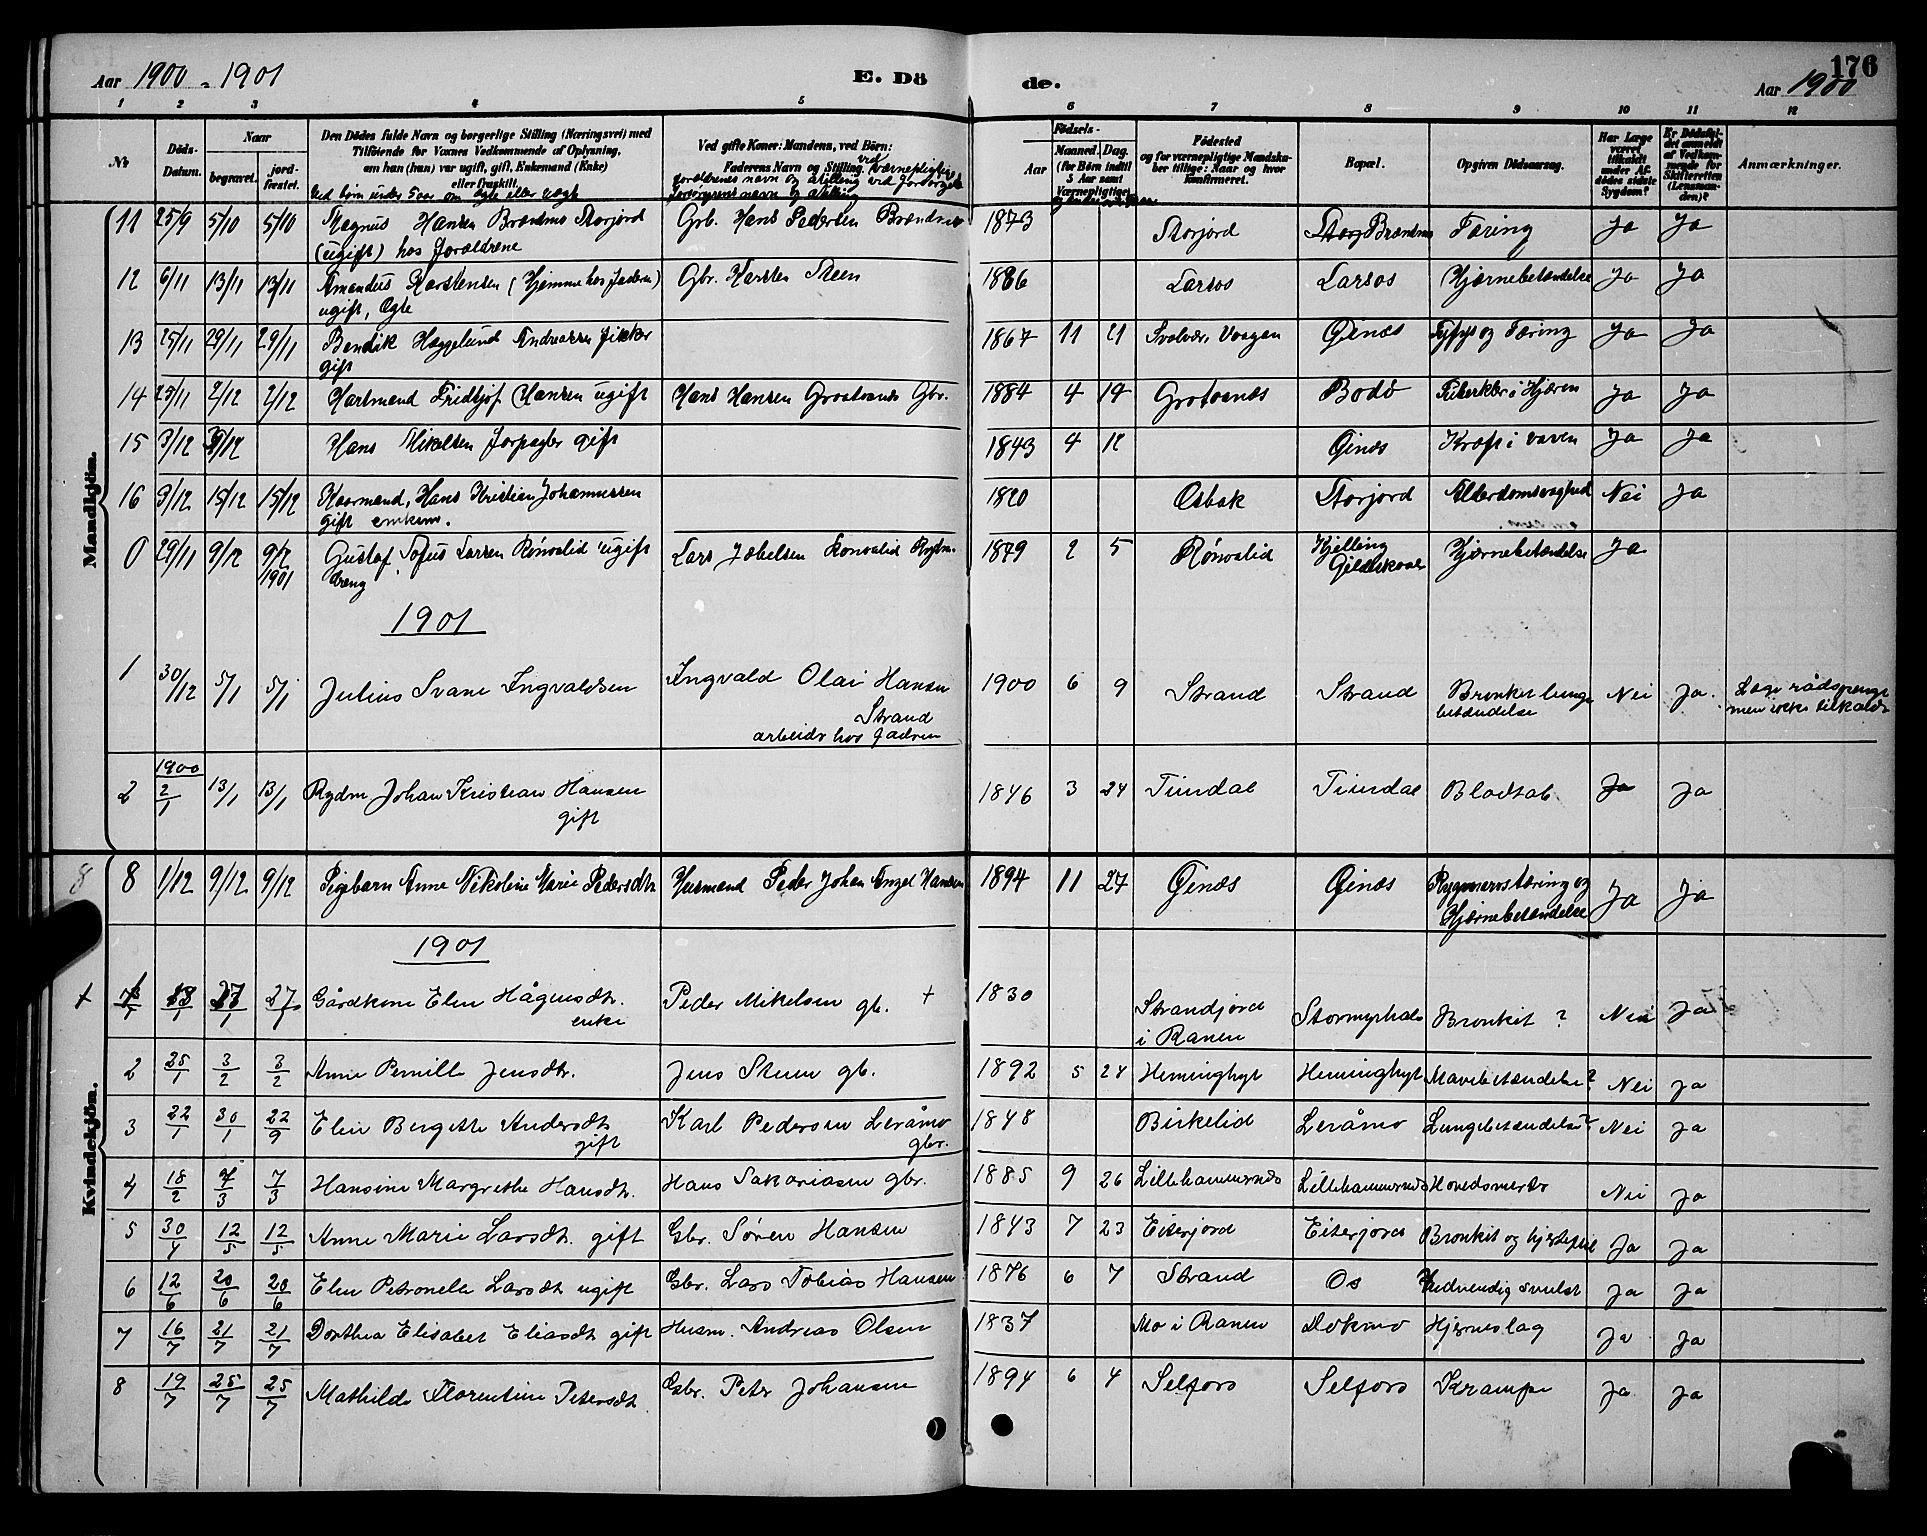 Aar 1900 - 1901 E. Dö de. 176 Aar 1900
1 2 3 4 5 6 7 8 9 10 11 12
No Döds-Datum. Naar begravet. jordfæstet. Den Dödes fulde Navn og borgerlige Stilling (Næringsvei) med Tilföiende for Voxnes Vedkommende af Oplysning, om han (hun) var ugift, gift, Enkemand (Enke) eller fraskilt. Ved børn under 5 aar om ægte eller uægte Ved gifte Koner: Mandens, ved Börn: Faderens Navn og Stilling. ved værnepligtige forældrenes navn og stilling ved forsørgede forsørgerens navn og stilling Födsels- Aar Maaned. Dag. (for Börn indtil 5 Aar samt Værnepligtige) Födested og for værnepligtige Mandskaber tillige: Naar og hvor konfirmeret. Bopæl. Opgiven Dödsaarsag. Har Læge været tilkaldt under Afdödes sidste Sygdom? Er Dödsfaldet anmeldt af Vedkommende for Skifteretten (Lensmanden)? Anmærkninger.
Mandkjön.
11 25/9 5/10 5/10 Magnus Hansen Brændmo Storjord Grb. Hans Pedersen Brændmo 1873 Storjord Brændmo Tæring Ja Ja
(ugift) hos forældrene
12 6/11 13/11 13/11 Amandus Karstensen (Hjemme hos faderen) Gbr. Karsten Steen 1886 Larsos Larsos Hjærnebetændelse Ja Ja
ugift, Ægte
13 25/11 29/11 29/11 Bendik Hæggelund Andreassen fisker 1867 11 21 Svolvær, Vaagan Ginæs Tyfus og Tæring Ja Ja
gift
14 23/11 2/12 2/12 Hartmand Fridtjof Hansen ugift Hans Hansen Grootvands Gbr. 1884 4 19 Grotvanes Bodö i Hjæren Ja Ja
15 3/12 9/12 Hans Mikelsen forpagter gift 1843 4 12 Ginæs Kræft i Ja Ja
16 3/12 15/12 15/12 Kaarmand, Hans Kristian Johannessen 1820 Osbak Storjord Alderdomsvaghed Nei Ja
gift enkem.
0 29/11 9/12 9/2 1901 Gustaf Tofus Larsen Rönvalid ugift Lars Jakobsen Ronvalid Rydm. 1879 2 5 Rönvalid Kjelling Gildeskaal Hjærnebetændelse Ja
dreng
1901
1 30/12 5/1 5/1 Julius Svane Ingvaldsen Ingvald Olai Hansen 1900 6 9 Strand Strand Bronkit lunge betændelse Nei Ja. Læge rådspurgt men ikke tilkaldt
Strand
arbeider hos fadren
2 1900 2/1 13/1 13/1 Rydm Johan Kristian Hansen 1846 3 24 Tiindal Tiindal Blodtab Ja Ja
gift
Kvindekjön.
8 8 1/12 9/12 9/12 Pigebarn Anne Nikoline Marie Pedersdtr Husmand Peder Johan Angel Hansen 1894 11 27 Ginæs Ginæs Rygmarvstæring og Hjærnebetændelse Ja Ja
1901
+ 1 13/1 27/1 27/1 Gårdkone Elen Hågensdtr. Peder Mikelsen gb. + 1830 Strandjord Stormyrhals Bronkit ? Nei Ja
enke i Ranen
2 25/1 3/2 3/2 Anne Pernille Jensdtr. Jens Steen gb. 1892 5 24 Heminghyt Heminghyt Mavebetændelse? Nei Ja
3 22/1 30/1 22/9 Elen Bergitte Andersdtr Karl Pedersen Leråmo 1848 Birkelid Leråmo Lungebetændelse? Nei Ja
gift gbr.
4 18/2 7/3 7/3 Hansine Margrethe Hansdtr. Hans Sakariasen gbr. 1885 9 26 Lillehammernes Lillehammernes Hovedsmerte Nei Ja
5 30/4 12/5 12/5 Anne Marie Larsdtr. gift Gbr. Sören Hansen 1843 7 23 Eiterjord Eiterjord Bronkit og hjertefeil Ja Ja
6 12/6 20/6 20/6 Elen Petronella Larsdtr ugift Gbr. Lars Tobias Hansen 1876 6 7 Strand Os Indvendig svulst Ja Ja
7 16/7 21/7 21/7 Dorthea Elisabet Eliasdtr gift Husm. Andreas Olsen 1837 Mo i Ranen Dokmo Hjerneslag Ja Ja
8 19/7 25/7 25/7 Mathilde Florentine Petersdtr. Gbr. Peter Johansen 1894 6 4 Selfors Selfors Krampe Ja Ja